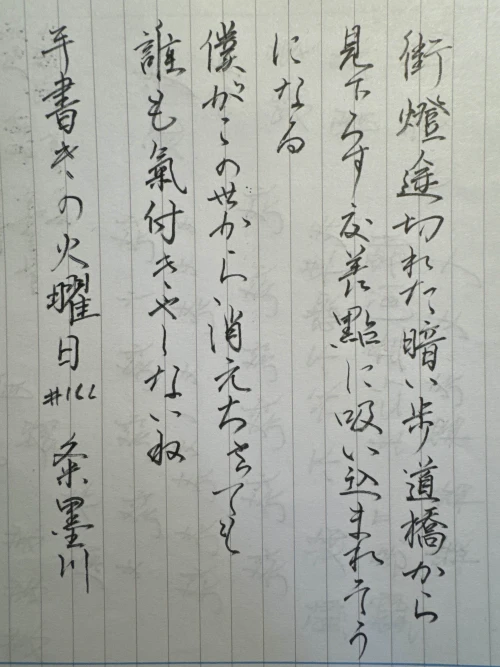 街燈途切れた暗い歩道橋から
見下ろす交差點に吸い込まれそう
になる
僕がこの世から消えちまっても
誰も氣付きやしないね
手書きの火曜日 #166 粂墨川